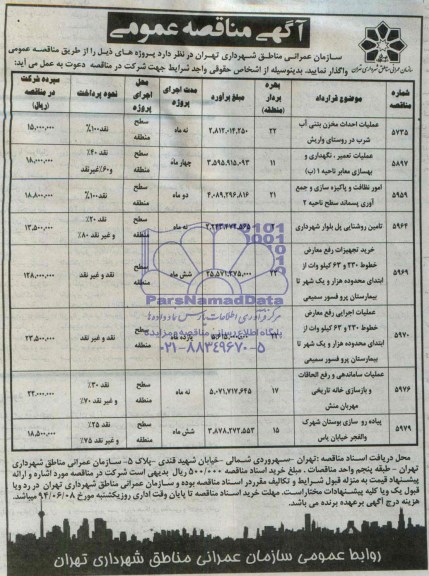 آگهی مناقصه عمومی
سازمان عمرانی مناطق شهرداری تهران
سازمان عمرانی مناطق شهرداری تهران در نظر دارد پروژه های ذیل را از طریق مناقصه عمومی
واگذار نمایید. بدینوسیله از اشخاص حقوقی واجد شرایط جهت شرکت در مناقصه دعوت به عمل می آید:
شماره مناقصه | موضوع قرارداد | بهره بردار (منطقه) | مبلغ برآورد | مدت اجرای پروژه | محل اجرای پروژه | نحوه پرداخت | سپرده شرکت در مناقصه (ریال)
۵۷۳۵ | عملیات احداث مخزن بتنی آب شرب در روستای واریش | ۲۲ | ۲,۸۱۲,۰۱۴,۲۵۰ | نه ماه | سطح منطقه | نقد ۱۰۰٪ | ۱۵,۰۰۰,۰۰۰
۵۸۹۷ | عملیات تعمیر ، نگهداری و بهسازی معابر ناحیه ۱ (ب) | ۱۱ | ۳,۵۹۵,۹۱۵,۰۹۳ | چهار ماه | سطح منطقه | نقد ۴۰٪ و ۶۰٪ غیر نقد | ۱۸,۰۰۰,۰۰۰
۵۹۵۹ | امور نظافت و پاکیزه سازی و جمع آوری پسماند سطح ناحیه ۲ | ۲۱ | ۴,۰۸۹,۲۹۶,۸۱۶ | دو ماه | سطح منطقه | نقد ۱۰۰٪ | ۱۸,۸۰۰,۰۰۰
۵۹۶۴ | تامین روشنایی پل بلوار شهرداری | نه ماه | سطح منطقه | نقد ۲۰٪ و غیر نقد ۸۰٪ | ۱۳,۵۰۰,۰۰۰
۵۹۶۹ | خرید تجهیزات رفع معارض خطوط ۲۳۰ و ۶۳ کیلو وات از ابتدای محدوده هزار و یک شهر تا بیمارستان پرو فسور سمیعی | ۲۲ | ۲۵,۵۷۱,۲۷۵,۰۰۰ | شش ماه | سطح منطقه | نقد و غیر نقد | ۱۲۸,۰۰۰,۰۰۰
۵۹۷۰ | عملیات اجرایی رفع معارض خطوط ۲۳۰ و ۶۳ کیلو وات از ابتدای محدوده هزار و یک شهر تا بیمارستان پرو فسور سمیعی | ۲۲ | یازده ماه | سطح منطقه | نقد و غیر نقد | ۲۳,۵۰۰,۰۰۰
۵۹۷۶ | عملیات ساماندهی و رفع الحاقات و بازسازی خانه تاریخی مهربان منش | ۱۷ | ۵,۰۷۱,۷۱۷,۶۴۵ | نه ماه | سطح منطقه | نقد ۳۰٪ و غیر نقد ۷۰٪ | ۲۲,۰۰۰,۰۰۰
۵۹۷۹ | پیاده رو سازی بوستان شهرک والفجر خیابان یاس | ۱۵ | ۳,۸۷۸,۲۷۲,۵۵۳ | شش ماه | سطح منطقه | نقد ۲۵٪ و غیر نقد ۷۵٪ | ۱۸,۵۰۰,۰۰۰
ParsNamadData
مرکز فرآوری اطلاعات پارس نماد داده ها
پایگاه اطلاع رسانی مناقصه و مزایده
۰۲۱-۸۸۳۴۹۶۷۰-۵
محل دریافت اسناد مناقصه :تهران -سهروردی شمالی -خیابان شهید قندی -پلاک ۵- سازمان عمرانی مناطق شهرداری
تهران - طبقه پنجم واحد مناقصات . مبلغ خرید اسناد مناقصه ۵۰۰/۰۰۰ ریال بدیهی است شرکت در مناقصه مورد اشاره و ارائه
پیشنهاد قیمت به منزله قبول شرایط و تکالیف مقرر در اسناد مناقصه بوده و سازمان عمرانی مناطق شهرداری تهران در رد ویا
قبول یک ویا کلیه پیشنهادات مختار است. مهلت خرید اسناد مناقصه تا پایان وقت اداری روز یکشنبه مورخ ۹۴/۰۶/۰۸ میباشد.
هزینه درج آگهی برعهده برنده می باشد.
روابط عمومی سازمان عمرانی مناطق شهرداری تهران